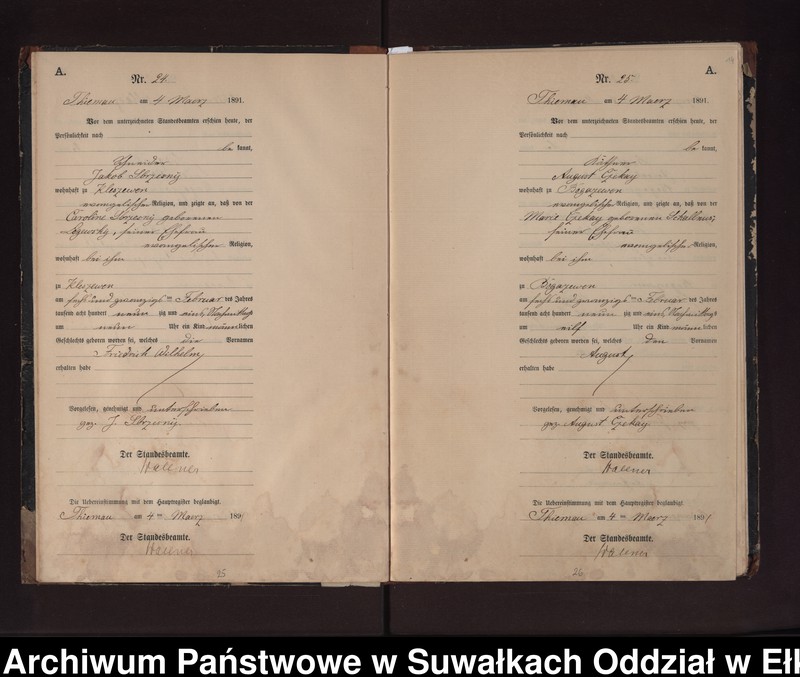 A.
Nr. 24.
am 4 Maerz 1891.
Vor dem unterzeichneten Standesbeamten erschien heute, der
Persönlichkeit nach
be kannt,
Schneider
Jakob
wohnhaft zu
evangelischer Religion, und zeigte an, daß von der
Caroline geborenen
seiner Ehefrau
evangelischer Religion,
wohnhaft bei ihm
zu
am sechs und zwanzigs ten Februar des Jahres
tausend acht hundert neun zig und eins, Nachmittags
um neun Uhr ein Kind männlichen
Geschlechts geboren worden sei, welches die Vornamen
Friedrich Wilhelm
erhalten habe
Vorgelesen, genehmigt und unterschrieben
gez. J.
Der Standesbeamte.
Die Uebereinstimmung mit dem Hauptregister beglaubigt.
am 4 ten Maerz 1891
Der Standesbeamte.
25
A.
Nr. 25.
am 4 Maerz 1891.
Vor dem unterzeichneten Standesbeamten erschien heute, der
Persönlichkeit nach
be kannt,
Käthner
August Czekay
wohnhaft zu
evangelischer Religion, und zeigte an, daß von der
Marie Czekay geborenen
seiner Ehefrau
evangelischer Religion,
wohnhaft bei ihm
zu
am sechs und zwanzigs ten Februar des Jahres
tausend acht hundert neun zig und eins, Nachmittags
um eilf Uhr ein Kind männlichen
Geschlechts geboren worden sei, welches den Vornamen
August
erhalten habe
Vorgelesen, genehmigt und unterschrieben
gez. August Czekay
Der Standesbeamte.
Die Uebereinstimmung mit dem Hauptregister beglaubigt.
am 4 ten Maerz 1891
Der Standesbeamte.
26
Archiwum Państwowe w Suwałkach Oddział w Ełk